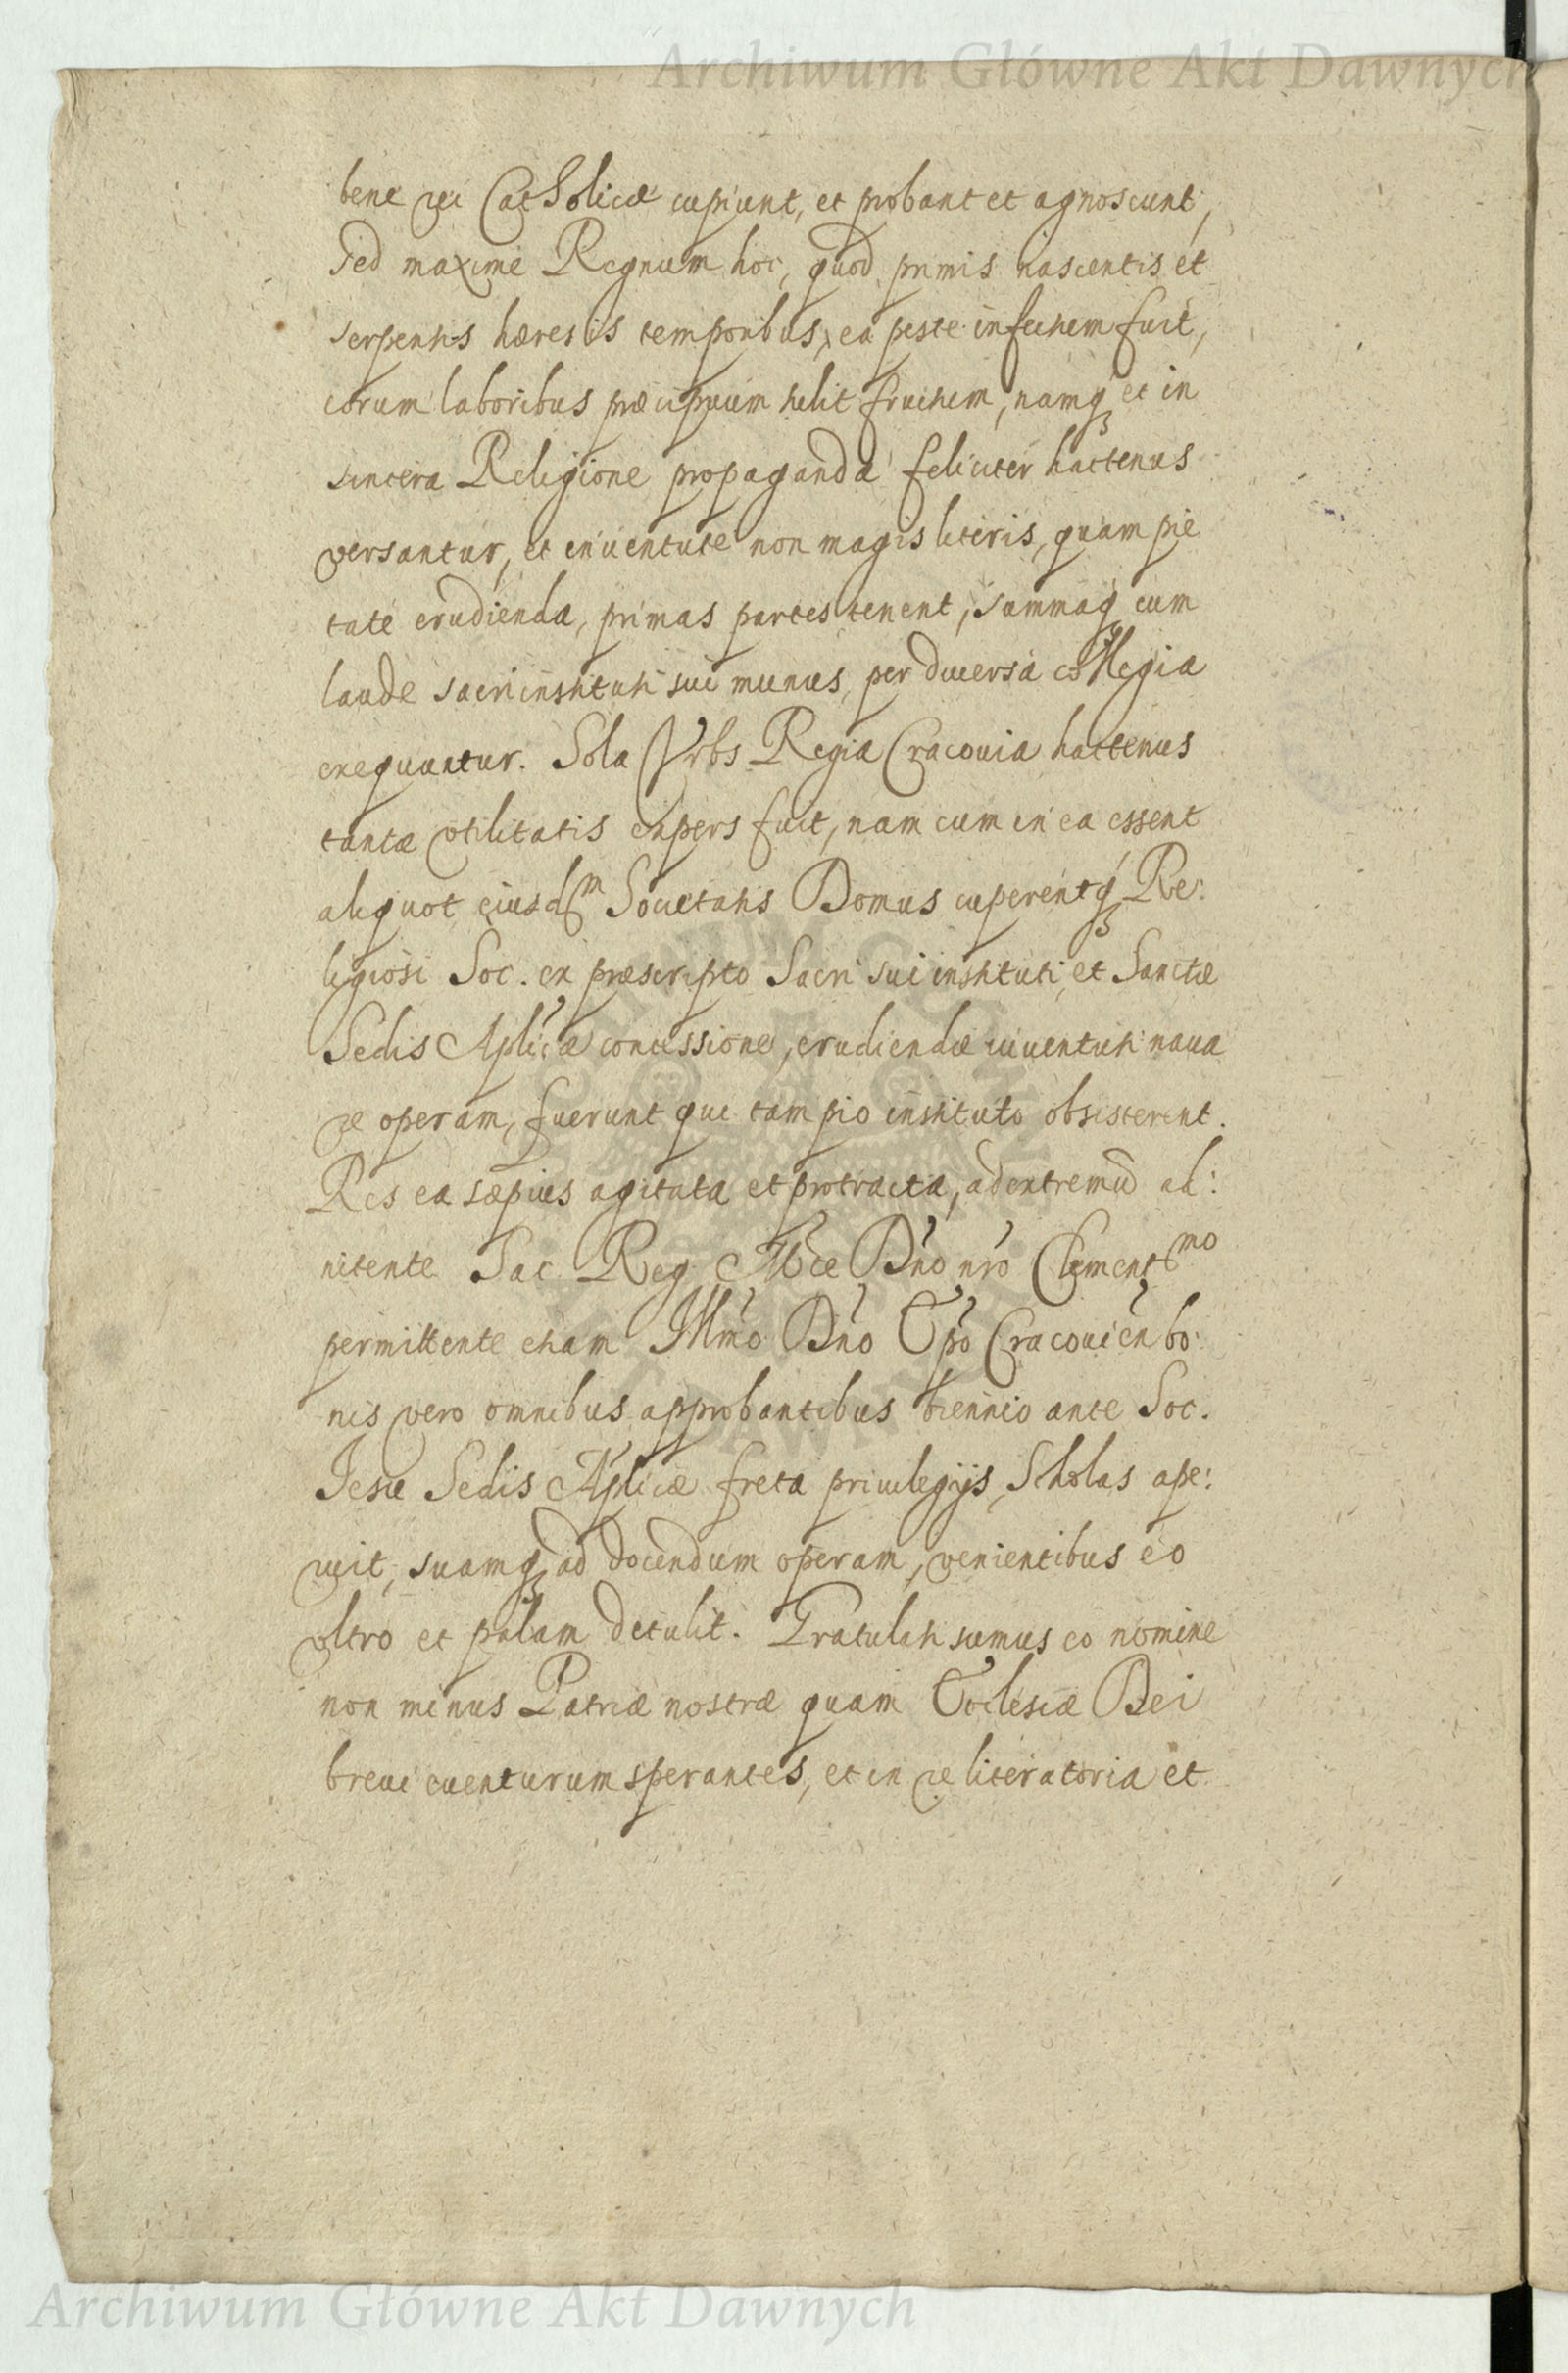 Archiwum Główne Akt Dawnych
bene rei Catholicæ cupiunt, et probant et agnoscunt,
sed maxime Regnum hoc, quod primis nascentis et
serpentis hæresis temporibus, ea peste infectum fuit,
eorum laboribus præcipuum tulit fructum, namq₃ et in
sincera Religione propaganda feliciter hactenus
versantur, et in iuventute non magis literis, quam pie
tate erudienda, primas partes tenent, summaq₃ cum
laude sacri instituti sui munus, per diuersa collegia
exequuntur. Sola Vrbs Regia Cracouia hactenus
tantæ vtilitatis expers fuit, nam cum in ea essent
aliquot eiusdem Societatis Domus cuperentq₃ Re:
ligiosi Soc. ex præscripto Sacri sui instituti, et Sanctæ
Sedis Aplicæ concessione, erudiendæ iuuentuti naua
re operam, fuerunt qui tam pio instituto obsisterent.
Res ea sæpius agitata et protracta, ad extremū ad:
nitente Sac. Reg. Mtte Dno nro Clementmo
permittente etiam Illmo Dno Epo Cracouien bo:
nis vero omnibus approbantibus biennio ante Soc.
Iesu Sedis Aplicæ freta priuilegijs, Scholas ape:
ruit, suamq₃ ad docendum operam, venientibus eo
vltro et palam detulit. Gratulati sumus eo nomine
non minus Patriæ nostræ quam Ecclesiæ Dei
breui euenturum sperantes, et in re literatoria et
Archiwum Główne Akt Dawnych